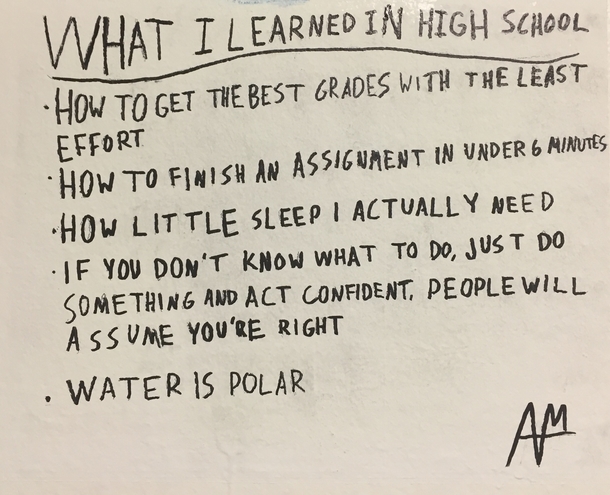 WHAT I LEARNED IN HIGH SCHOOL
· HOW TO GET THE BEST GRADES WITH THE LEAST
EFFORT
· HOW TO FINISH AN ASSIGNMENT IN UNDER 6 MINUTES
· HOW LITTLE SLEEP I ACTUALLY NEED
· IF YOU DON'T KNOW WHAT TO DO, JUST DO
SOMETHING AND ACT CONFIDENT. PEOPLE WILL
ASSUME YOU'RE RIGHT
· WATER IS POLAR
AM